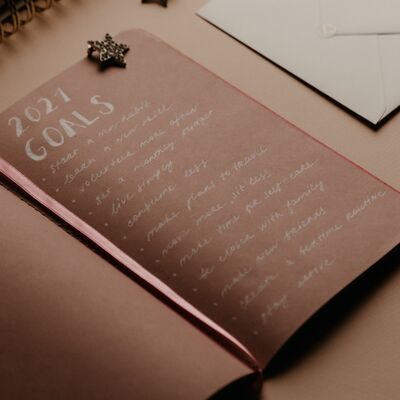 2021
GOALS
• start a new habit
• learn a new skill
• volunteer more often
• get a monthly
• live simply
• consume less
• make plans to travel
• move more, sit less
• make time for self-care
• be closer with family
• make new friends
• create a bedtime routine
• stay active